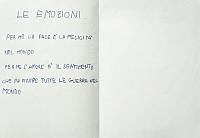 LE EMOZIONI
PER ME LA PACE È LA FELICITÀ
NEL MONDO
PER ME L'AMORE È IL SENTIMENTO
CHE FA FINIRE TUTTE LE GUERRE NEL
MONDO